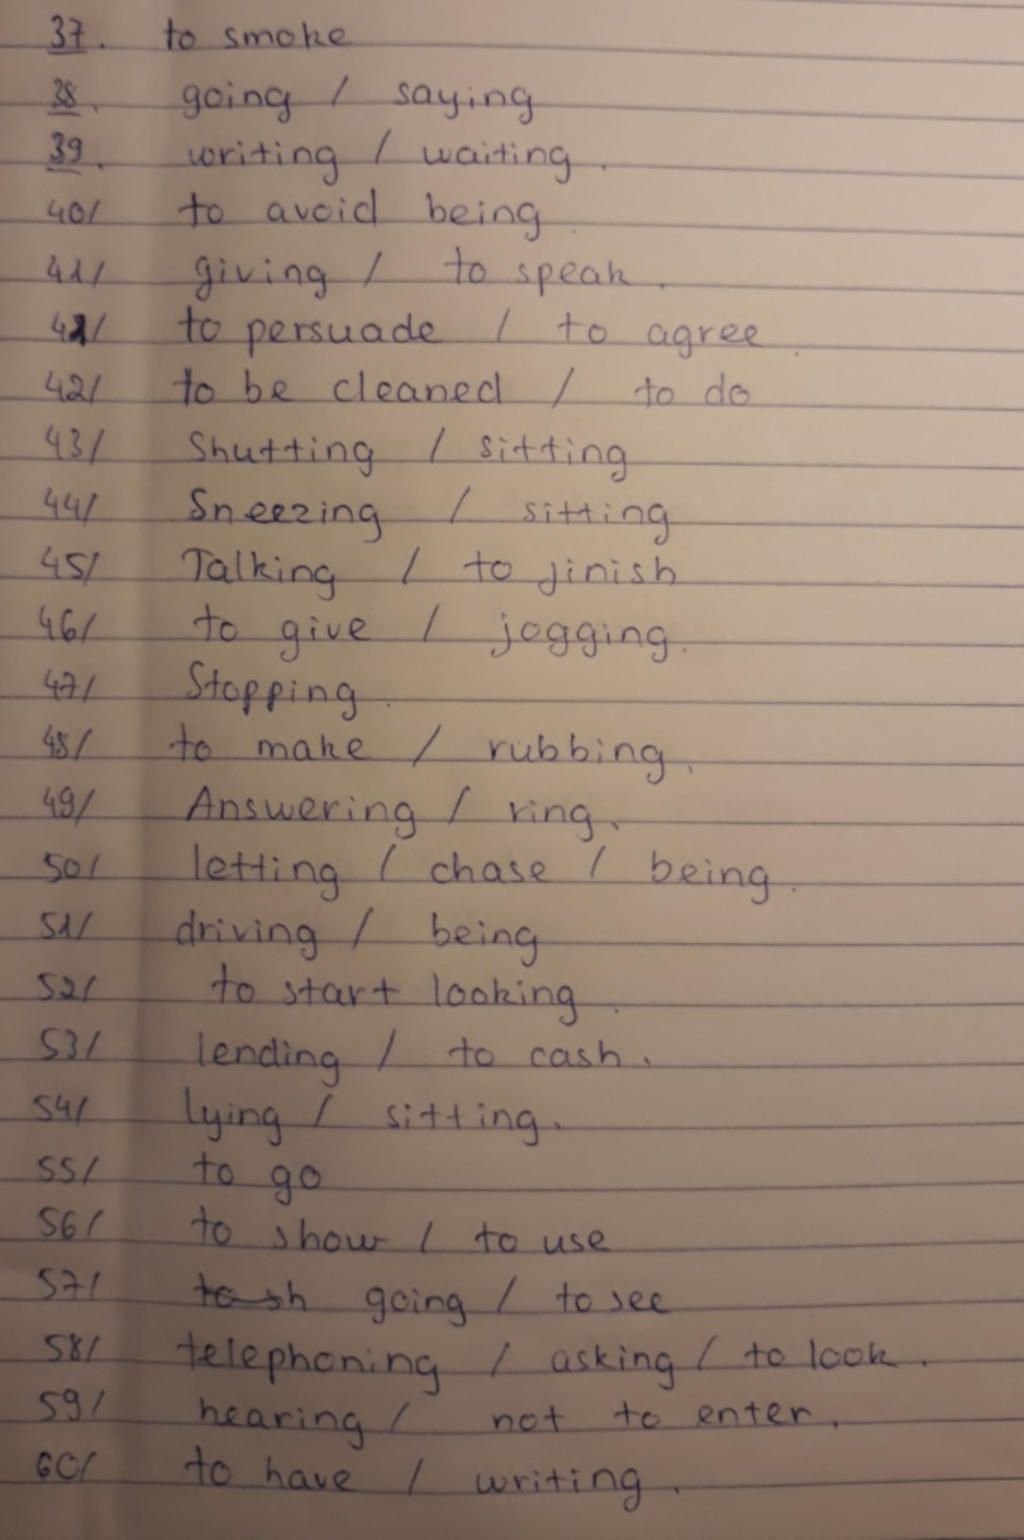 37. to smoke
38. going / saying
39. writing / waiting.
40/ to avoid being.
41/ giving / to speak.
41/ to persuade / to agree.
42/ to be cleaned / to do
43/ Shutting / sitting
44/ Sneezing / sitting
45/ Talking / to finish
46/ to give / jogging.
47/ Stopping.
48/ to make / rubbing.
49/ Answering / ring.
50/ letting / chase / being.
51/ driving / being
52/ to start looking.
53/ lending / to cash.
54/ lying / sitting.
55/ to go
56/ to show / to use
57/ to sh going / to see
58/ telephoning / asking / to look.
59/ hearing / not to enter.
60/ to have / writing.